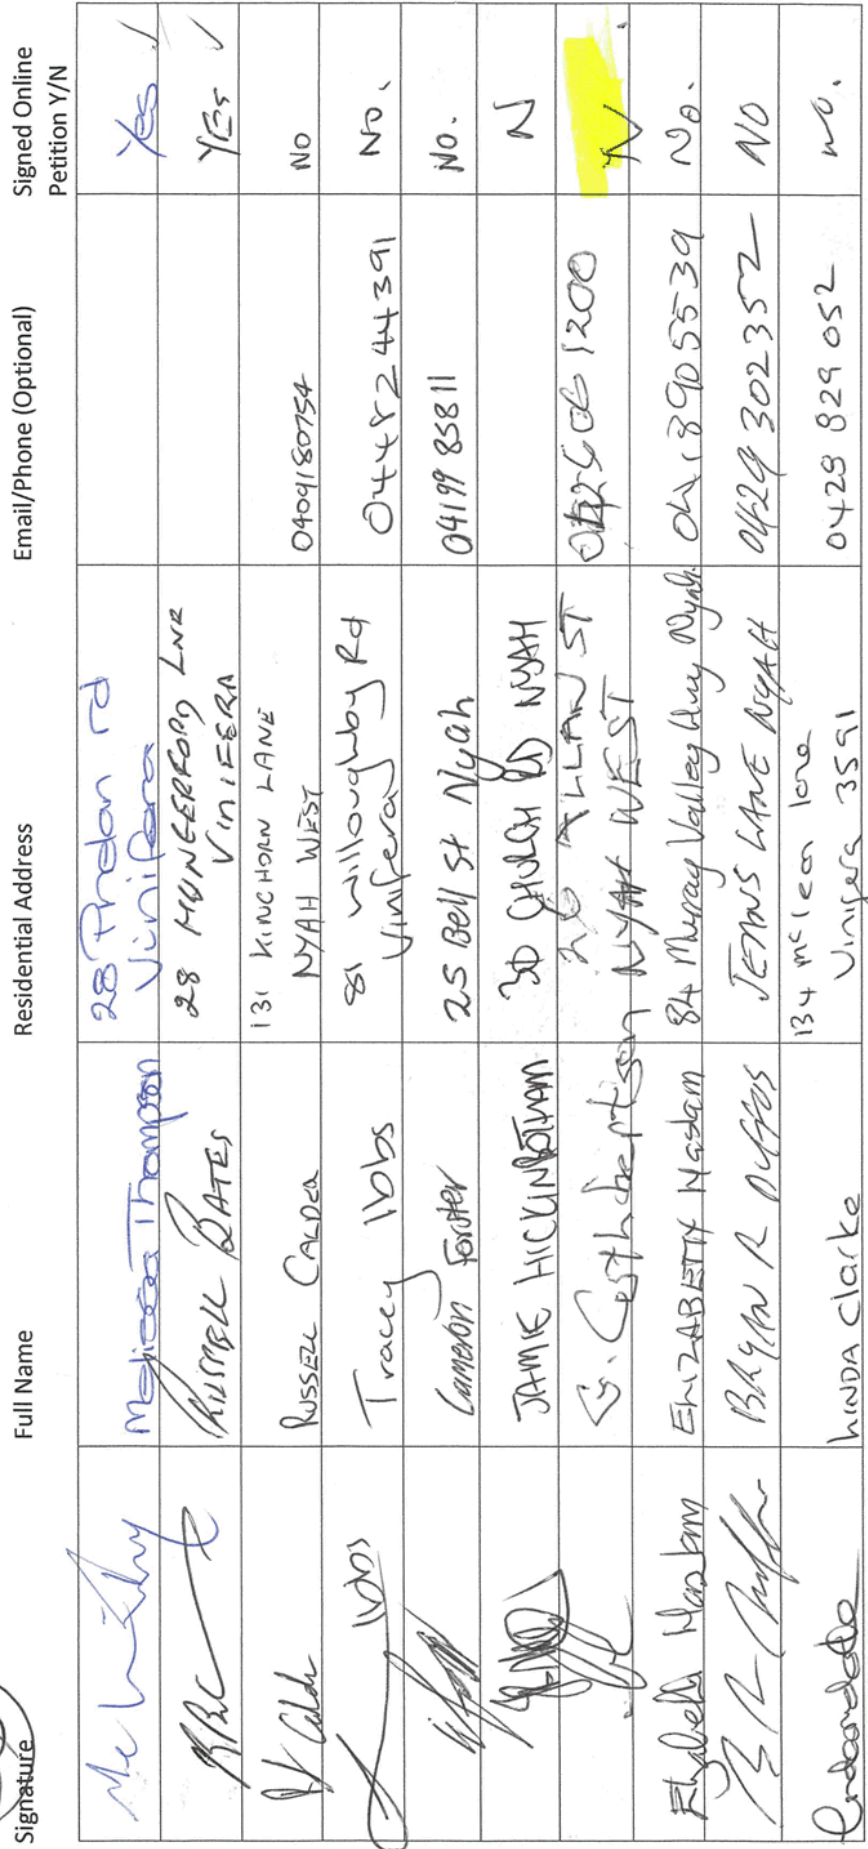 Signature Full Name Residential Address Email/Phone (Optional) Signed Online
Petition Y/N
Melissa Thompson 28 Pridon rd Yes ✓
Vinifera
RUSSELL BATES 28 HUNGERFORD LNE YES ✓
VINIFERA
RUSSELL CALDER 131 KINCHORN LANE 0409180754 NO
NYAH WEST
Ibbs Tracey Ibbs 81 Willoughby Rd 0448244391 No.
Vinifera
Cameron Forster 25 Bell St Nyah 0419985811 NO.
JAMIE HICKINBOTHAM 30 RD NYAH N
G. Cuthbertson 26 ALLAN ST 1200
NYAH WEST
Elizabeth Haslam ELIZABETH Haslam 84 Murray Valley Hwy Nyah. 0418905539 No.
BRYAN R DUFFUS JEANS LANE NYAH 0429302352 NO
LINDA Clarke 134 McLean lane 0428 829 052 no.
Vinifera 3591